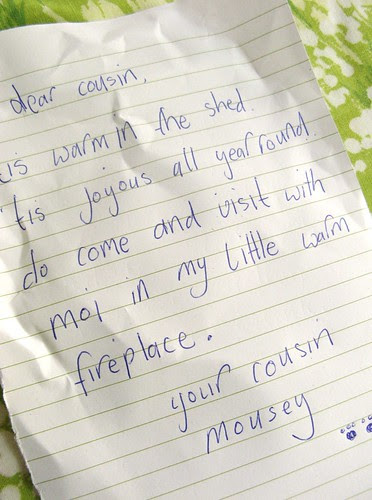 dear cousin,
tis warm in the shed.
'tis joyous all year round.
do come and visit with
moi in my little warm
fireplace.
your cousin
mousey